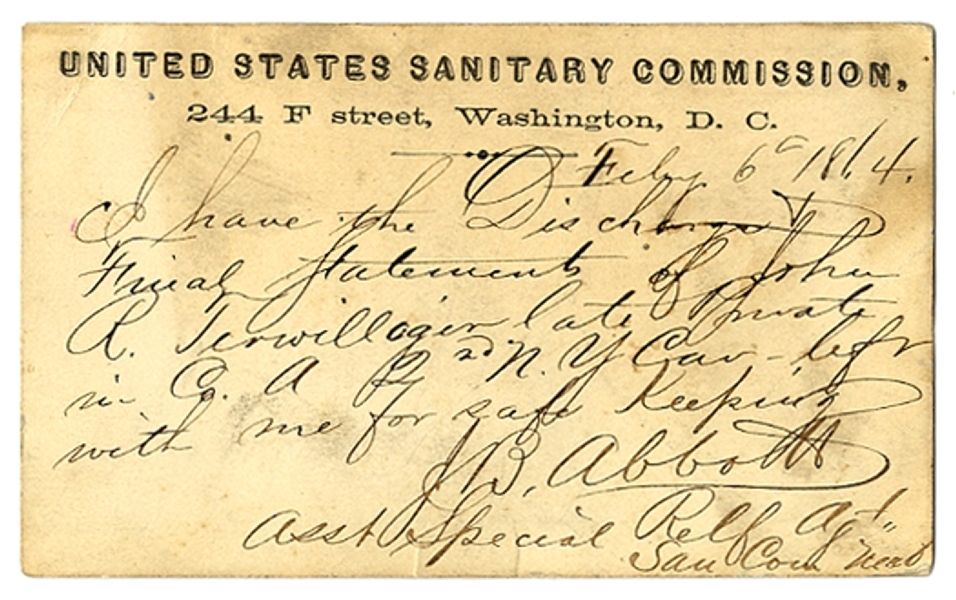 UNITED STATES SANITARY COMMISSION,
244 F street, Washington, D. C.
Feby 6 1864.
I have the Discharge &
Final Statements of John
R. Terwilloger late Private
in Co. A 2d N. Y Cav - left
with me for safe Keeping
J B. Abbott
Asst Special Relf Agt.
San Com